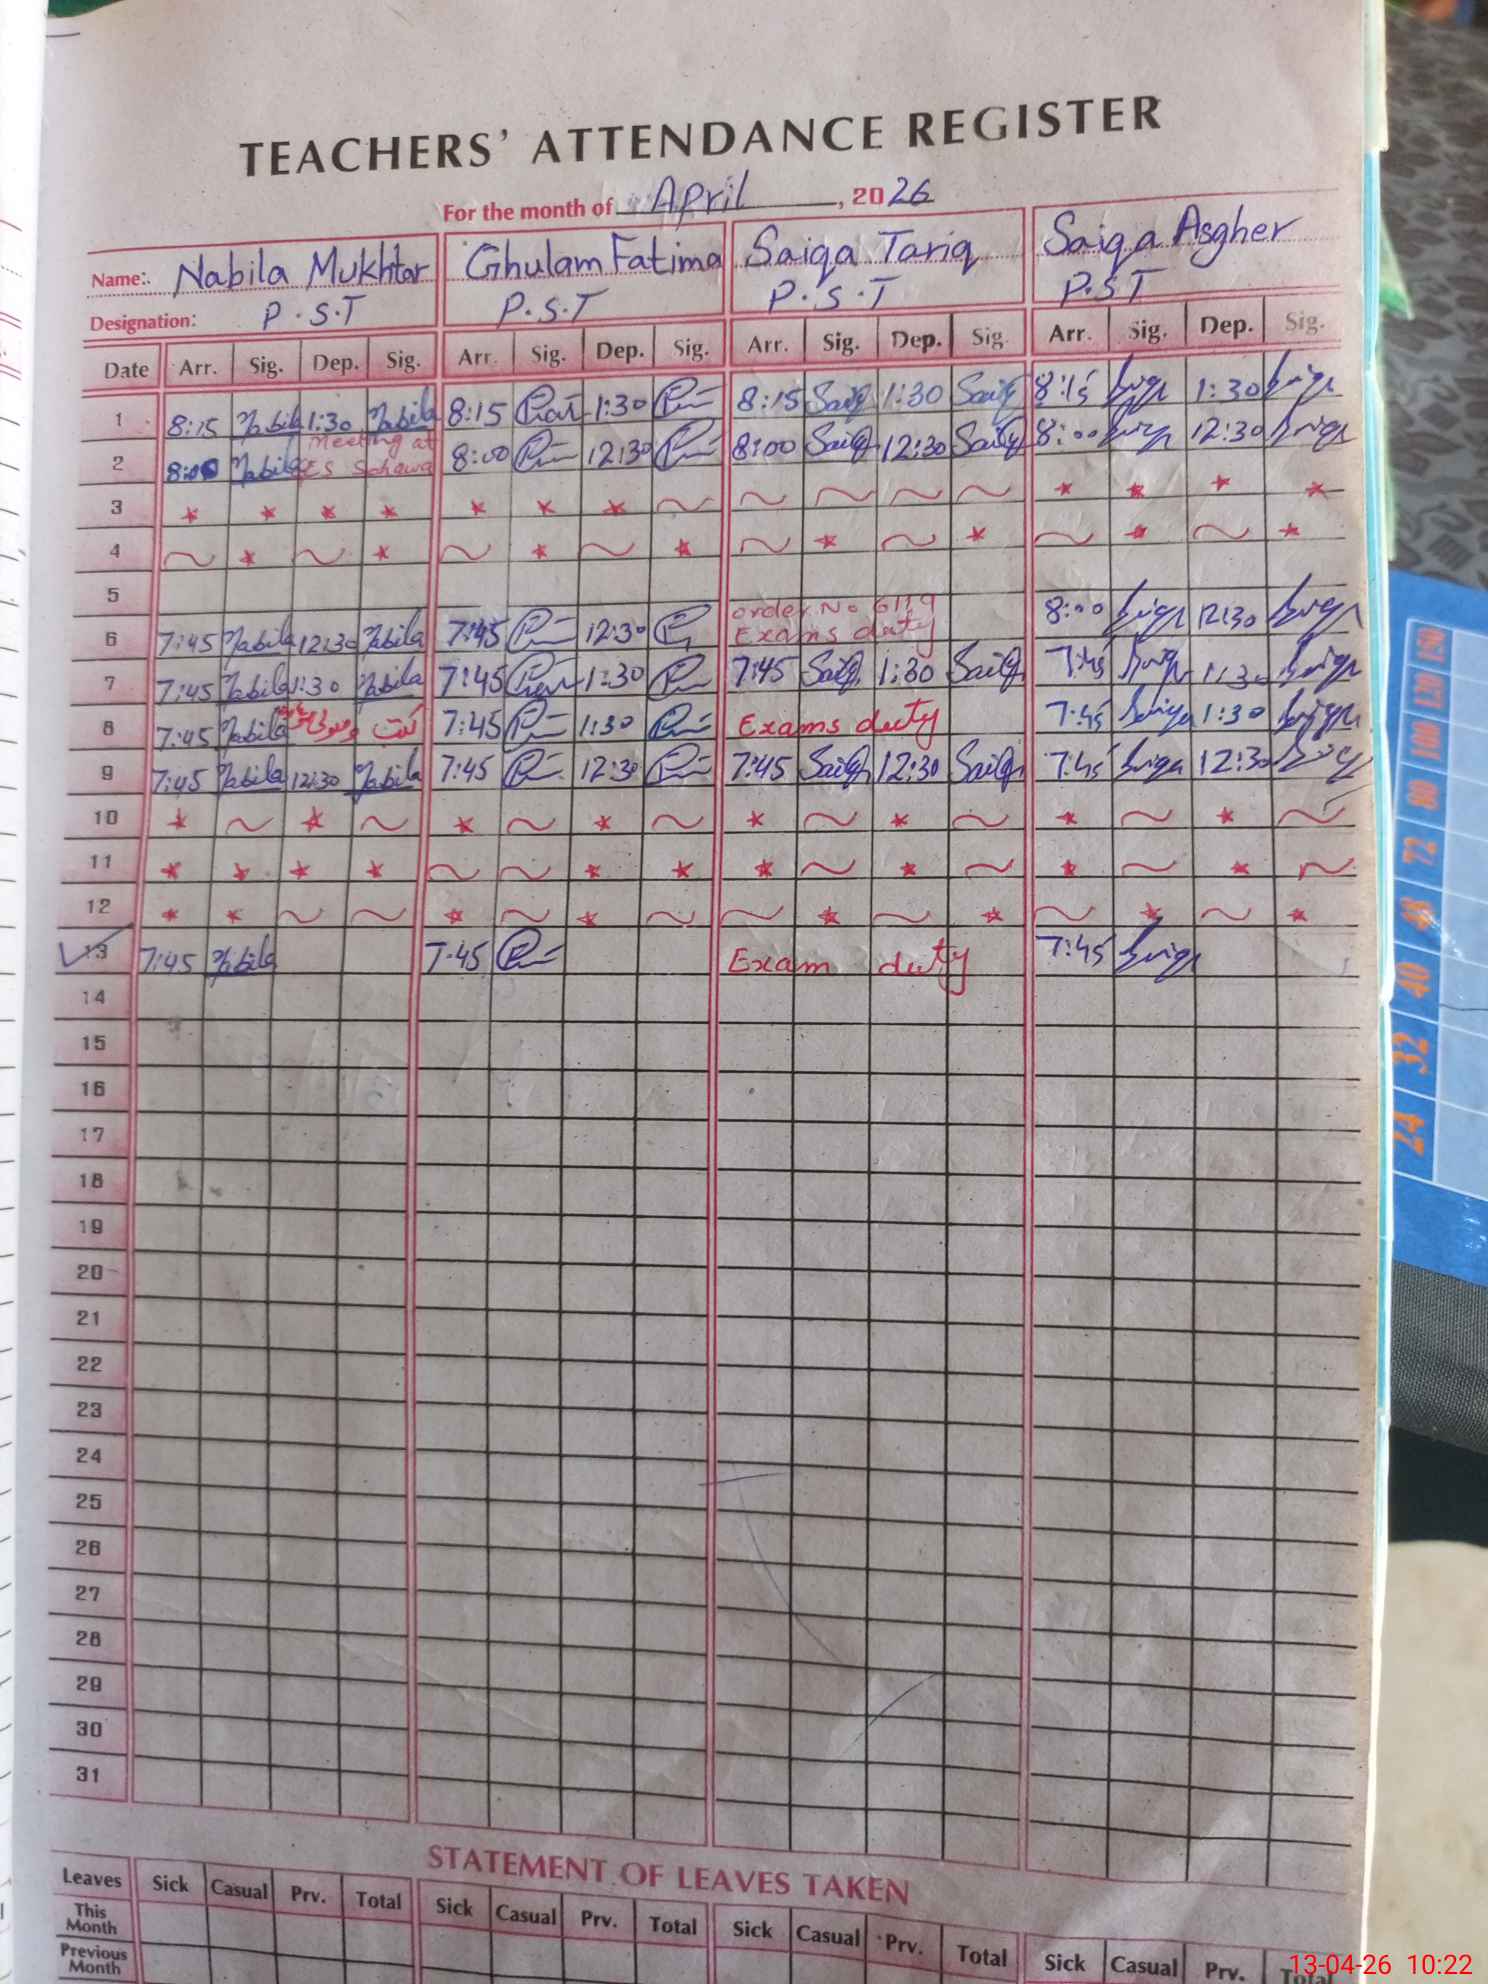 TEACHERS' ATTENDANCE REGISTER
For the month of April, 2026
Name: Nabila Mukhtar Ghulam Fatima Saiqa Tariq Saiqa Asgher
Designation: P.S.T P.S.T P.S.T P.S.T
Date Arr. Sig. Dep. Sig. Arr. Sig. Dep. Sig. Arr. Sig. Dep. Sig. Arr. Sig. Dep. Sig.
1 8:15 Nabila 1:30 Nabila 8:15 1:30 8:15 Saiq 1:30 Saiq 8:15 1:30
Meeting at
2 8:00 Nabila 8:00 12:30 8:00 Saiq 12:30 Saiq 8:00 12:30
3
4
5
order No 6119
6 7:45 Nabila 12:30 Nabila 7:45 12:30 Exams duty 8:00 12:30
7 7:45 Nabila 1:30 Nabila 7:45 1:30 7:45 Saiq 1:30 Saiq 7:45 1:30
8 7:45 Nabila کتب 7:45 1:30 Exams duty 7:45 1:30
9 7:45 Nabila 12:30 Nabila 7:45 12:30 7:45 Saiq 12:30 Saiq 7:45 12:30
10
11
12
13 7:45 Nabila 7:45 Exam duty 7:45
14
15
16
17
18
19
20
21
22
23
24
25
26
27
28
29
30
31
STATEMENT OF LEAVES TAKEN
Leaves Sick Casual Prv. Total Sick Casual Prv. Total Sick Casual Prv. Total Sick Casual Prv. Total
This Month
Previous Month
13-04-26 10:22
150
120
100
80
72
48
40
32
24